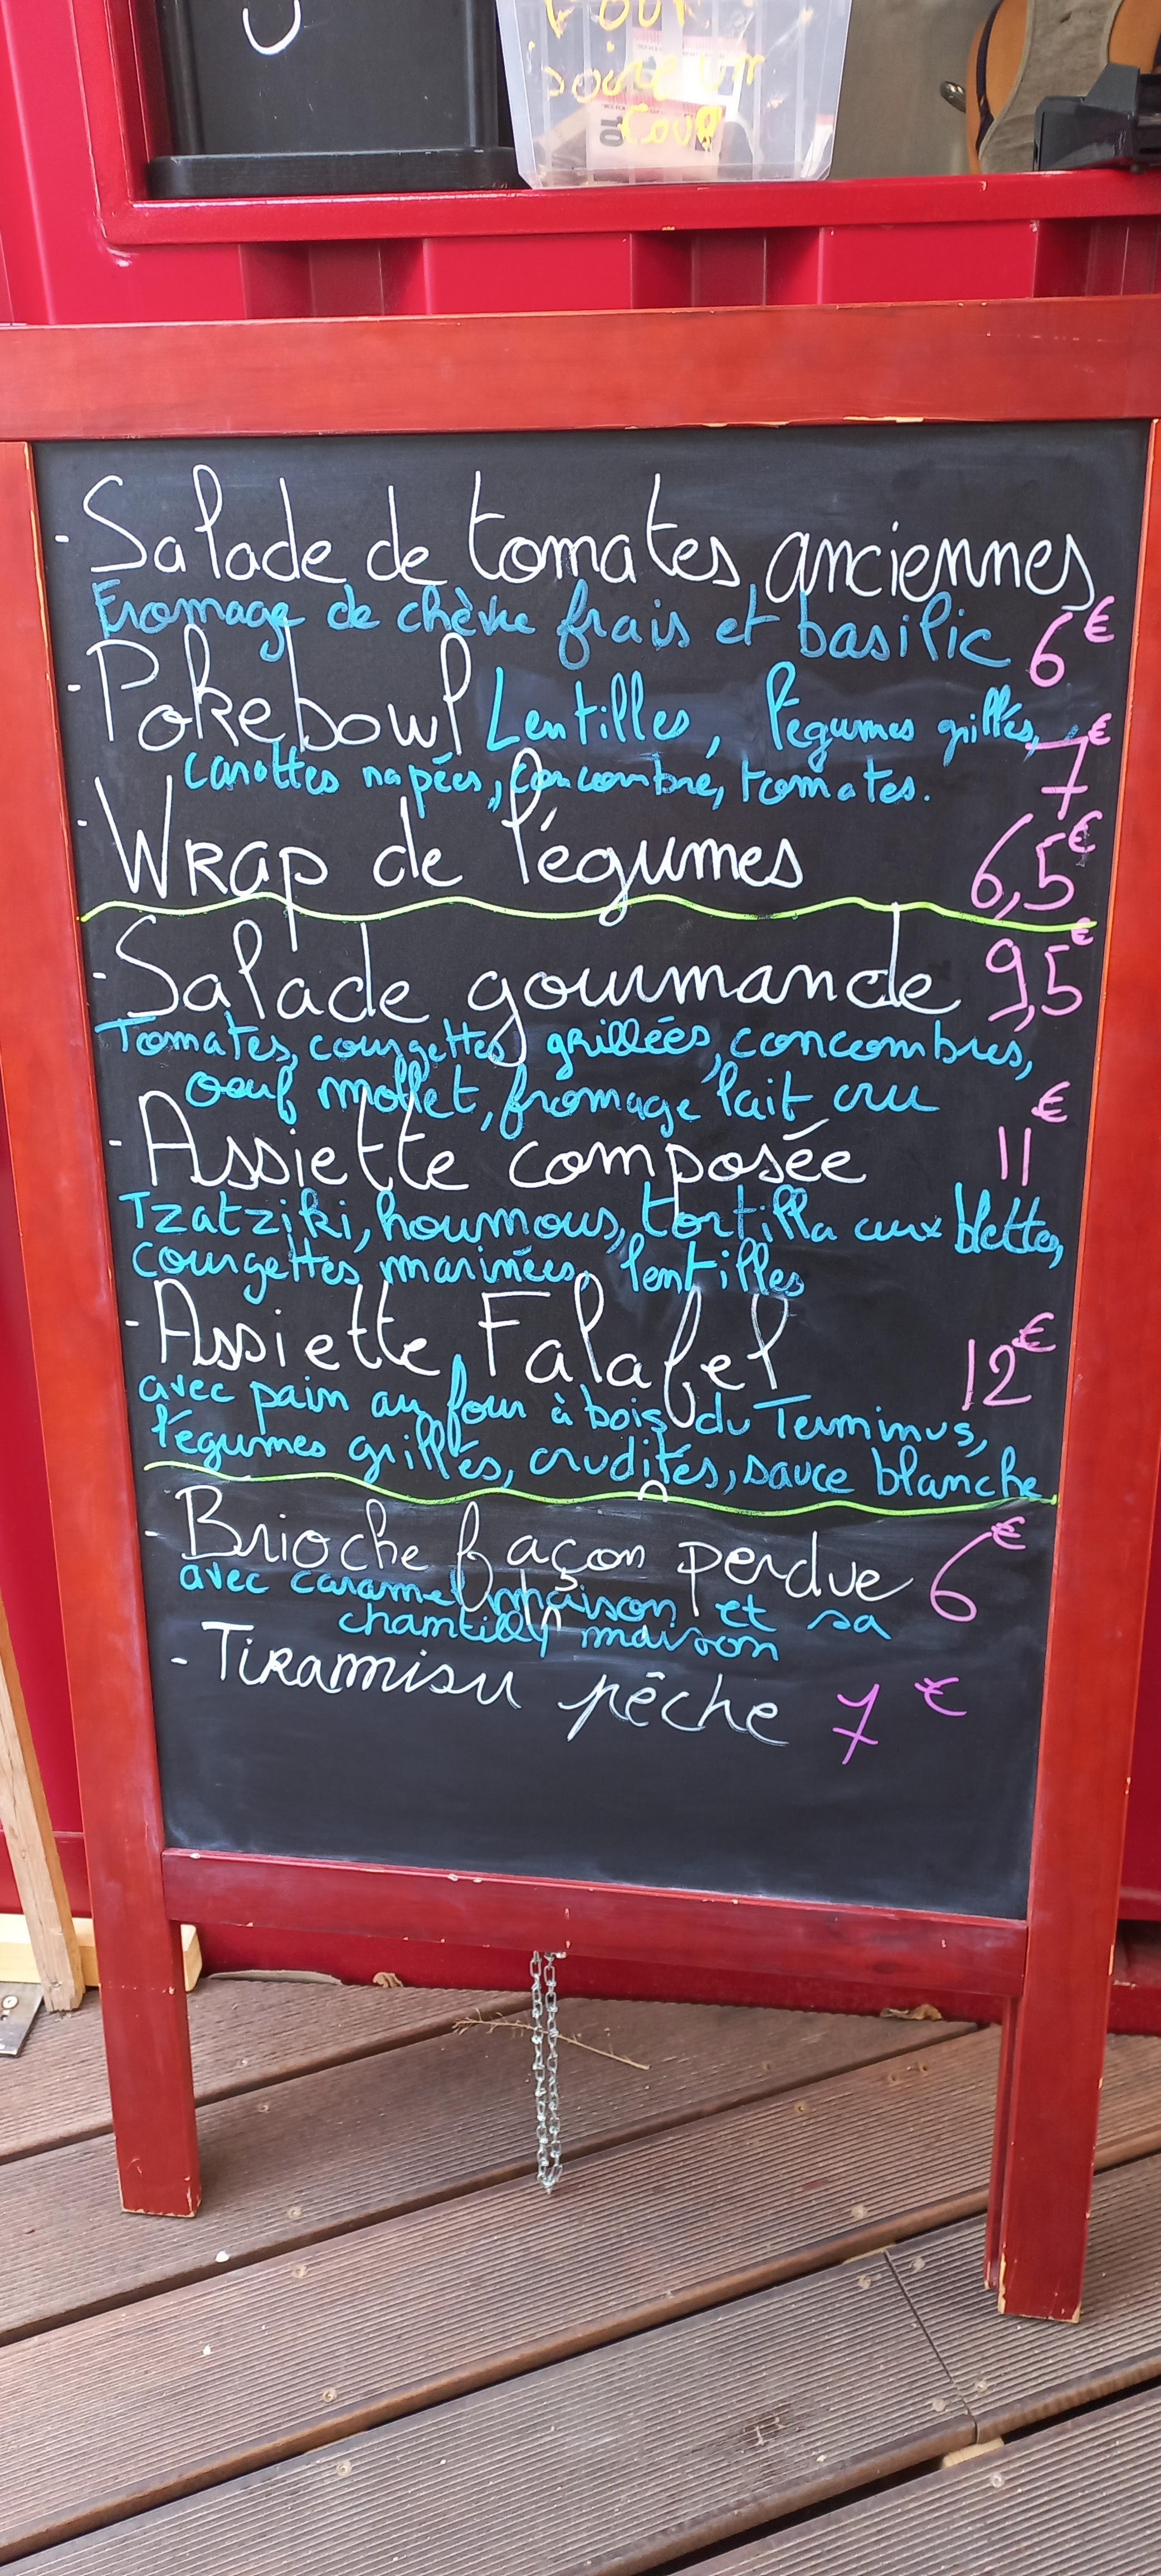 Pour
boire un
coup
10
- Salade de tomates anciennes
Fromage de chèvre frais et basilic 6€
- Pokebowl Lentilles, légumes grillés, 7€
carottes rapées, concombre, tomates.
- Wrap de légumes 6,5€
- Salade gourmande 9,5€
Tomates, courgettes grillées, concombres,
oeuf mollet, fromage lait cru
- Assiette composée 11€
Tzatziki, houmous, tortilla aux blettes,
courgettes marinées, lentilles
- Assiette Falafel 12€
avec pain au four à bois du Terminus,
légumes grillés, crudités, sauce blanche
- Brioche façon perdue 6€
avec caramel maison et sa
chantilly maison
- Tiramisu pêche 7€